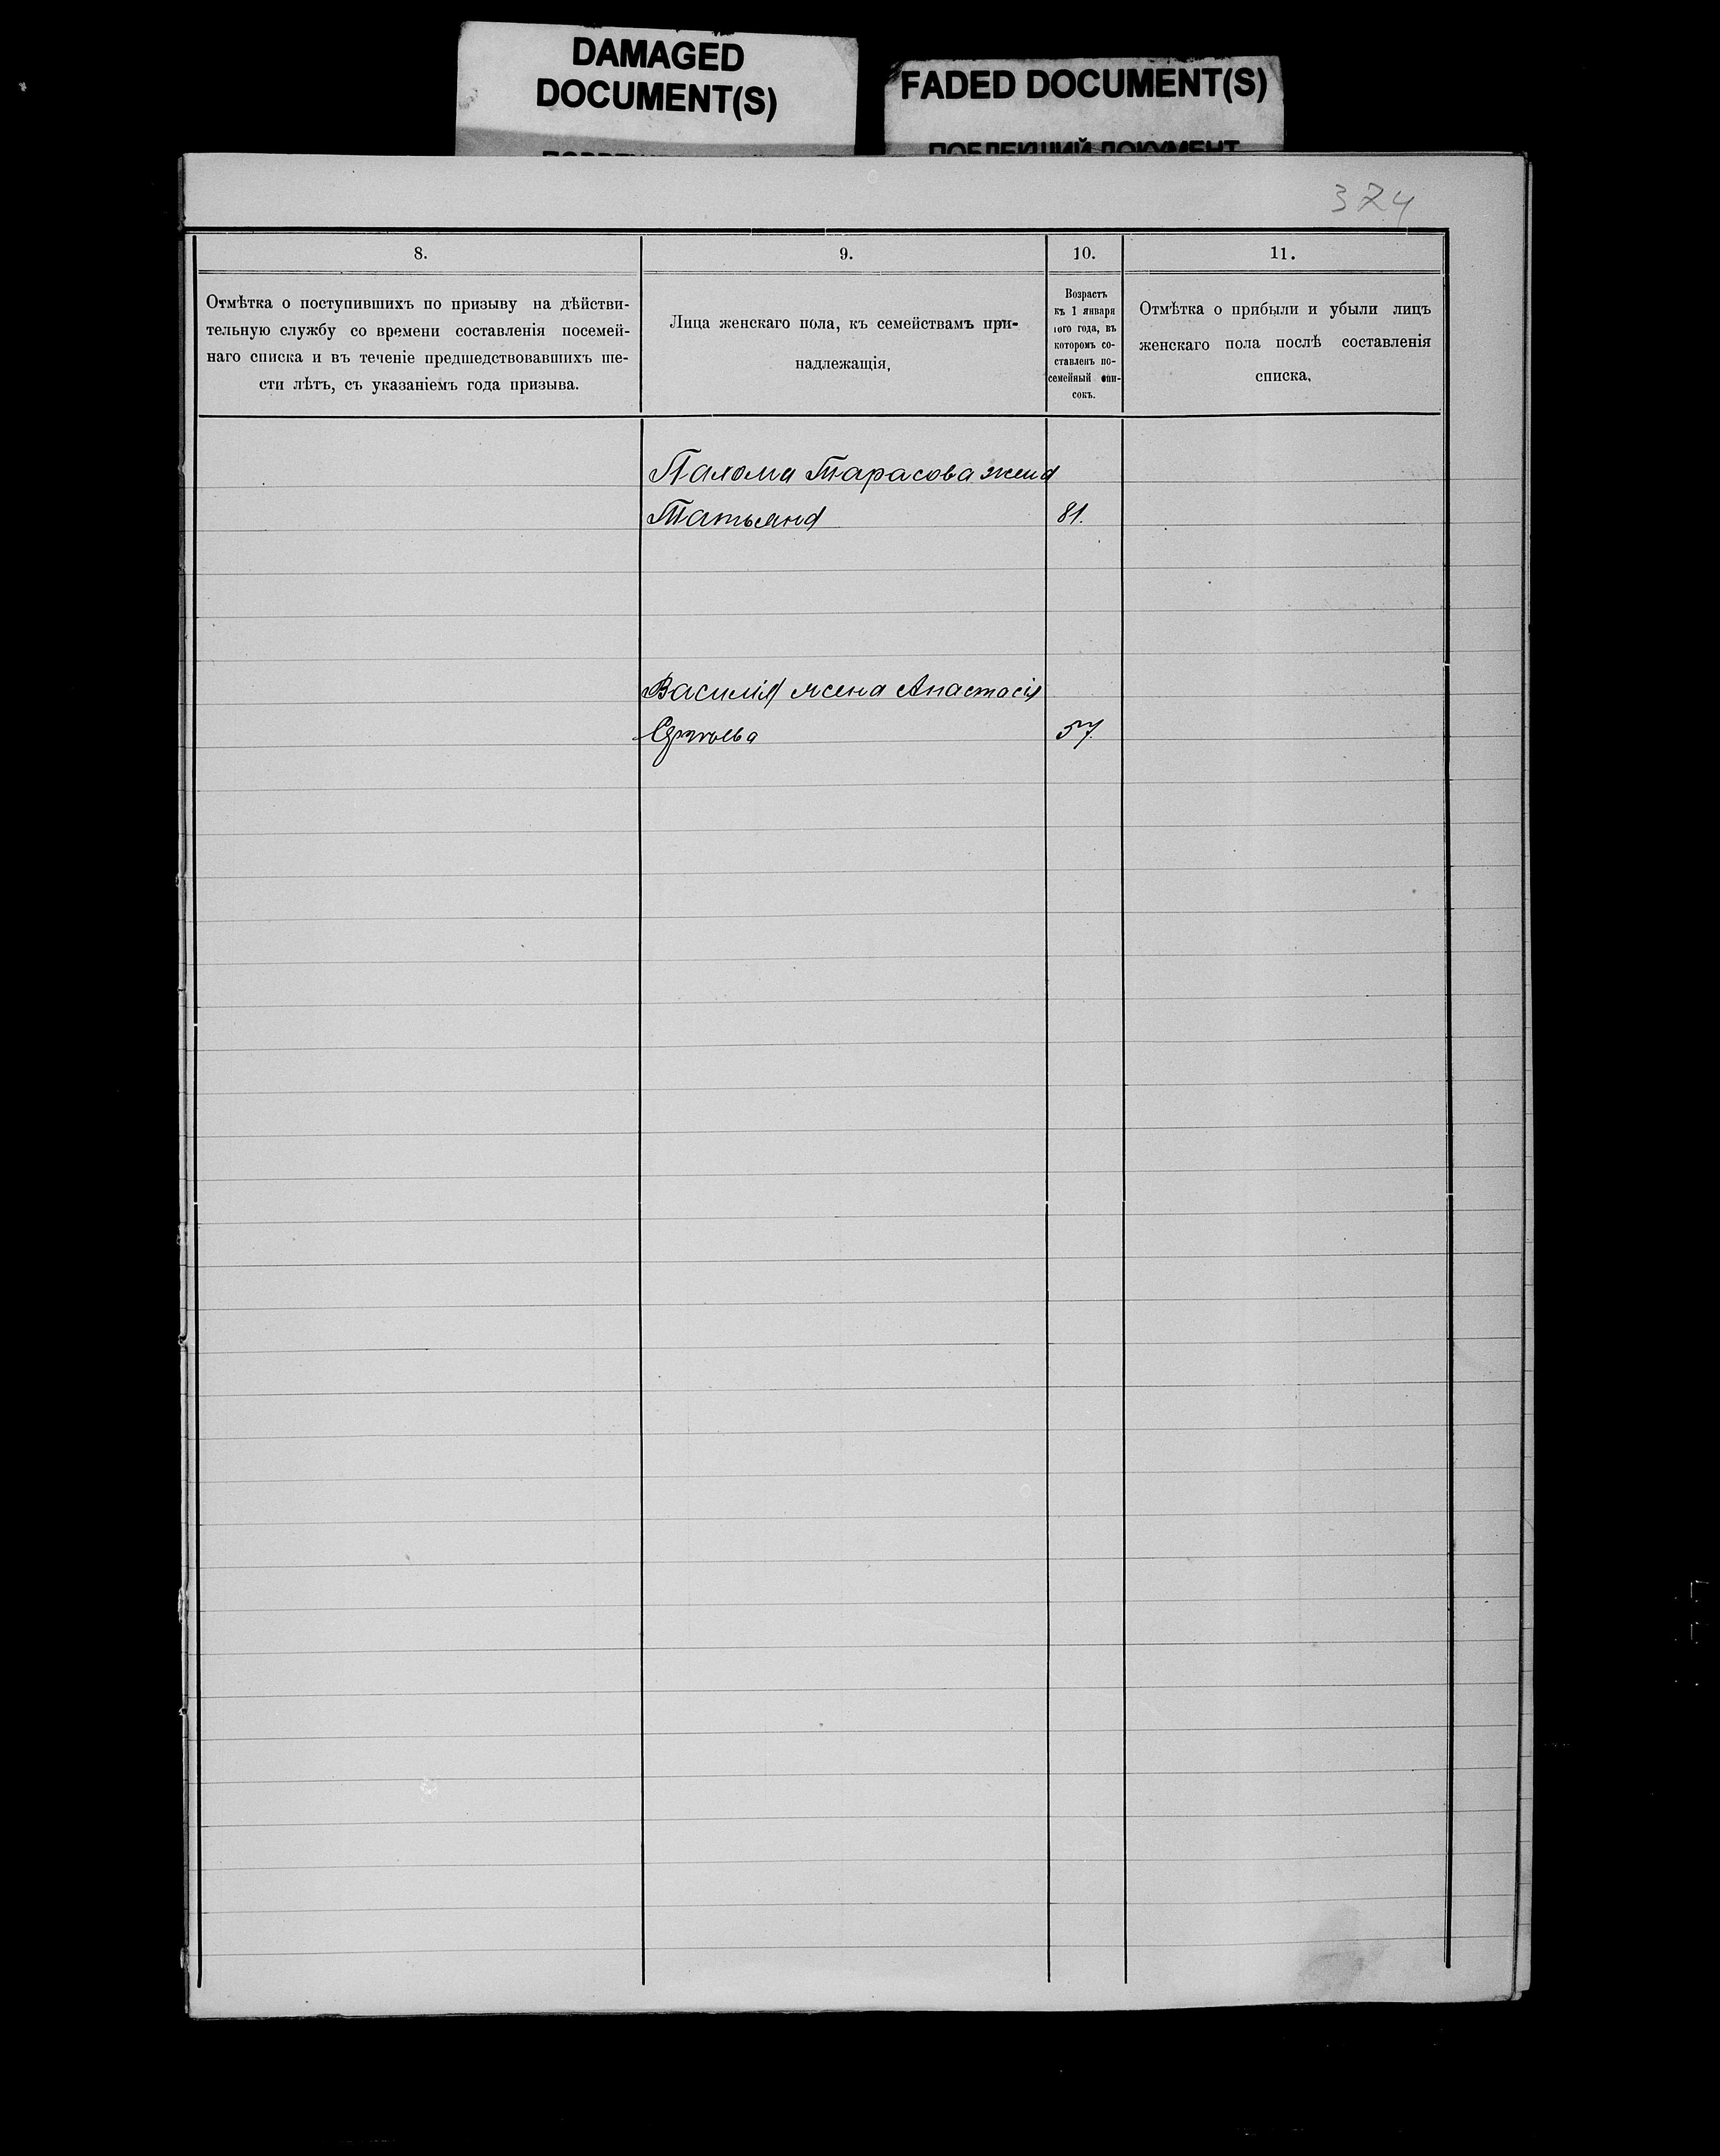 DAMAGED
DOCUMENT(S)
FADED DOCUMENT(S)
ПОБЛЕКШИЙ ДОКУМЕНТ
374
8.
Отмѣтка о поступившихъ по призыву на дѣйстви-
тельную службу со времени составленія посемей-
наго списка и въ теченіе предшедствовавшихъ ше-
сти лѣтъ, съ указаніемъ года призыва.
9.
Лица женскаго пола, къ семействамъ при-
надлежащія,
10.
Возрастъ
къ 1 января
того года, въ
которомъ со-
ставленъ по-
семейный спи-
сокъ.
11.
Отмѣтка о прибыли и убыли лицъ
женскаго пола послѣ составленія
списка,
Тарасова жена
Татьяна 81.
Василія жена Анастасія
57.